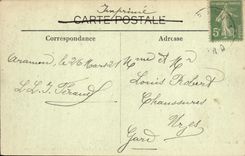 Imprimé
CARTE POSTALE
Correspondance
Adresse
Aramon, le 26 Mars 21
L. L. J. Piraud
Mme et Mr
Louis Robert
Chaussures
Uzès
Gard
5